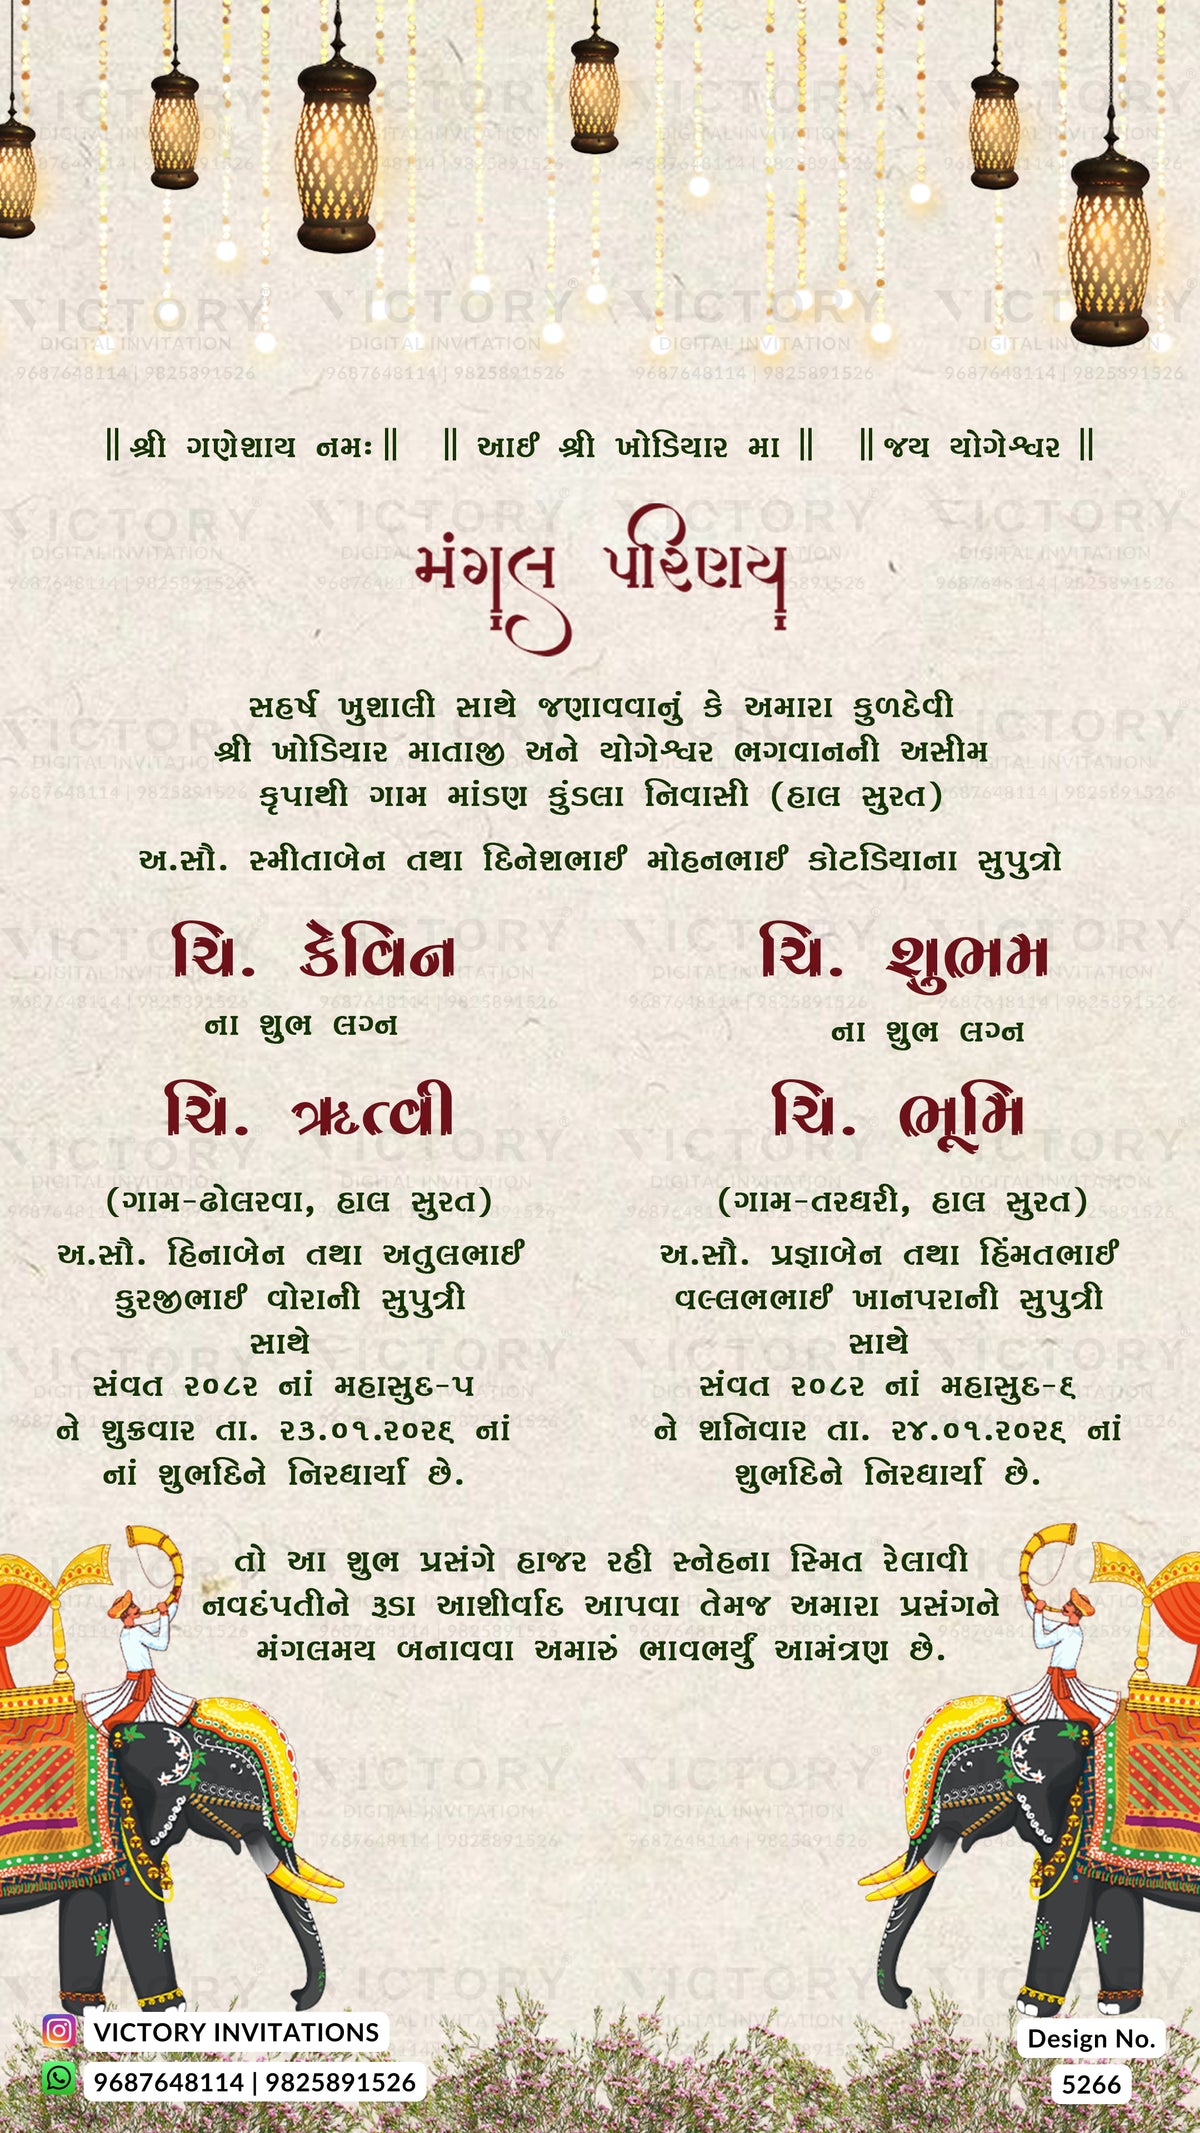 ॥ શ્રી ગણેશાય નમઃ ॥ ॥ આઈ શ્રી ખોડિયાર મા ॥ ॥ જય યોગેશ્વર ॥
મંગલ પરિણય
સહર્ષ ખુશાલી સાથે જણાવવાનું કે અમારા કુળદેવી
શ્રી ખોડિયાર માતાજી અને યોગેશ્વર ભગવાનની અસીમ
કૃપાથી ગામ માંડણ કુંડલા નિવાસી (હાલ સુરત)
અ.સૌ. સ્મીતાબેન તથા દિનેશભાઈ મોહનભાઈ કોટડિયાના સુપુત્રો
ચિ. કેવિન
ના શુભ લગ્ન
ચિ. ઋત્વી
(ગામ-ઢોલરવા, હાલ સુરત)
અ.સૌ. હિનાબેન તથા અતુલભાઈ
કુરજીભાઈ વોરાની સુપુત્રી
સાથે
સંવત ૨૦૮૨ નાં મહાસુદ-૫
ને શુક્રવાર તા. ૨૩.૦૧.૨૦૨૬ નાં
નાં શુભદિને નિરધાર્યા છે.
ચિ. શુભમ
ના શુભ લગ્ન
ચિ. ભૂમિ
(ગામ-તરઘરી, હાલ સુરત)
અ.સૌ. પ્રજ્ઞાબેન તથા હિંમતભાઈ
વલ્લભભાઈ ખાનપરાની સુપુત્રી
સાથે
સંવત ૨૦૮૨ નાં મહાસુદ-૬
ને શનિવાર તા. ૨૪.૦૧.૨૦૨૬ નાં
શુભદિને નિરધાર્યા છે.
તો આ શુભ પ્રસંગે હાજર રહી સ્નેહના સ્મિત રેલાવી
નવદંપતીને રૂડા આશીર્વાદ આપવા તેમજ અમારા પ્રસંગને
મંગલમય બનાવવા અમારું ભાવભર્યું આમંત્રણ છે.
VICTORY INVITATIONS
9687648114 | 9825891526
Design No.
5266
VICTORY
DIGITAL INVITATION
9687648114 | 9825891526